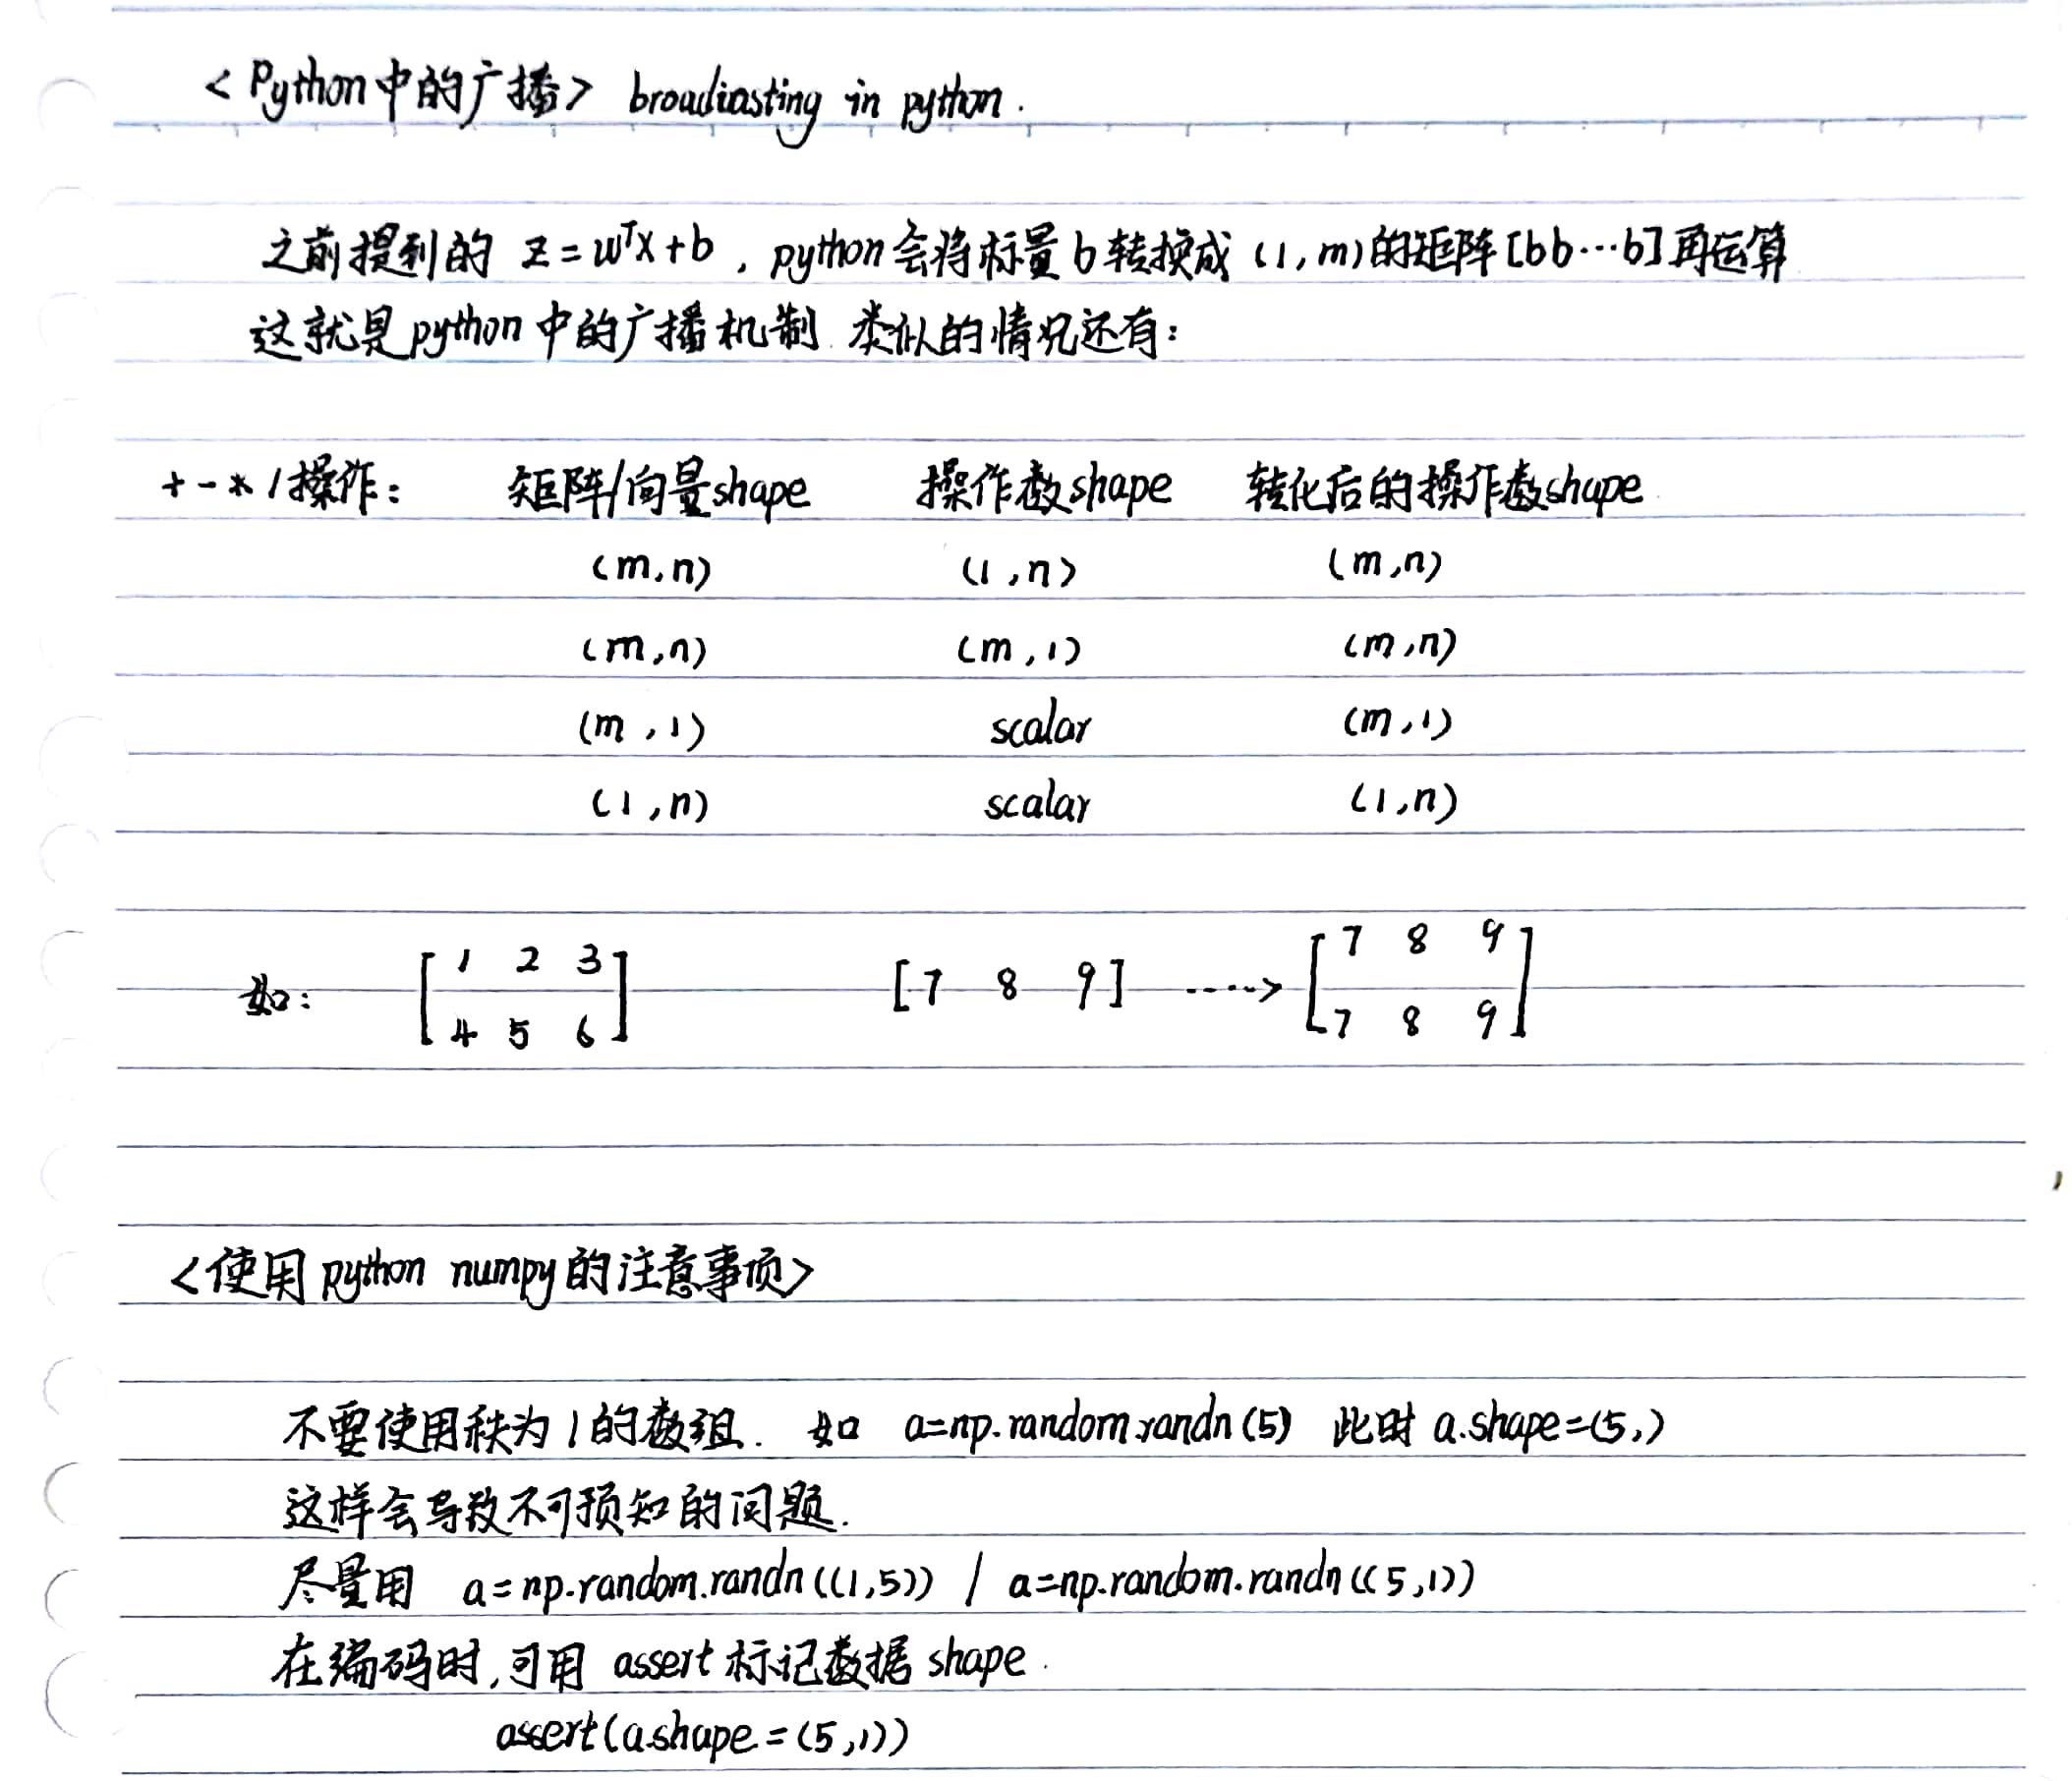 <Python中的广播> broadcasting in python.
之前提到的 z = wᵀx + b , python会将标量b转换成 (1, m)的矩阵[b b ··· b]再运算
这就是python中的广播机制. 类似的情况还有:
+ - * / 操作: 矩阵/向量shape 操作数shape 转化后的操作数shape
(m,n) (1,n) (m,n)
(m,n) (m,1) (m,n)
(m,1) scalar (m,1)
(1,n) scalar (1,n)
如: [1 2 3 [7 8 9] ·····> [7 8 9
4 5 6] 7 8 9]
<使用python numpy的注意事项>
不要使用秩为1的数组. 如 a=np.random.randn(5) 此时 a.shape=(5,)
这样会导致不可预知的问题.
尽量用 a=np.random.randn((1,5)) / a=np.random.randn((5,1))
在编码时,可用 assert 标记数据 shape.
assert(a.shape=(5,1))